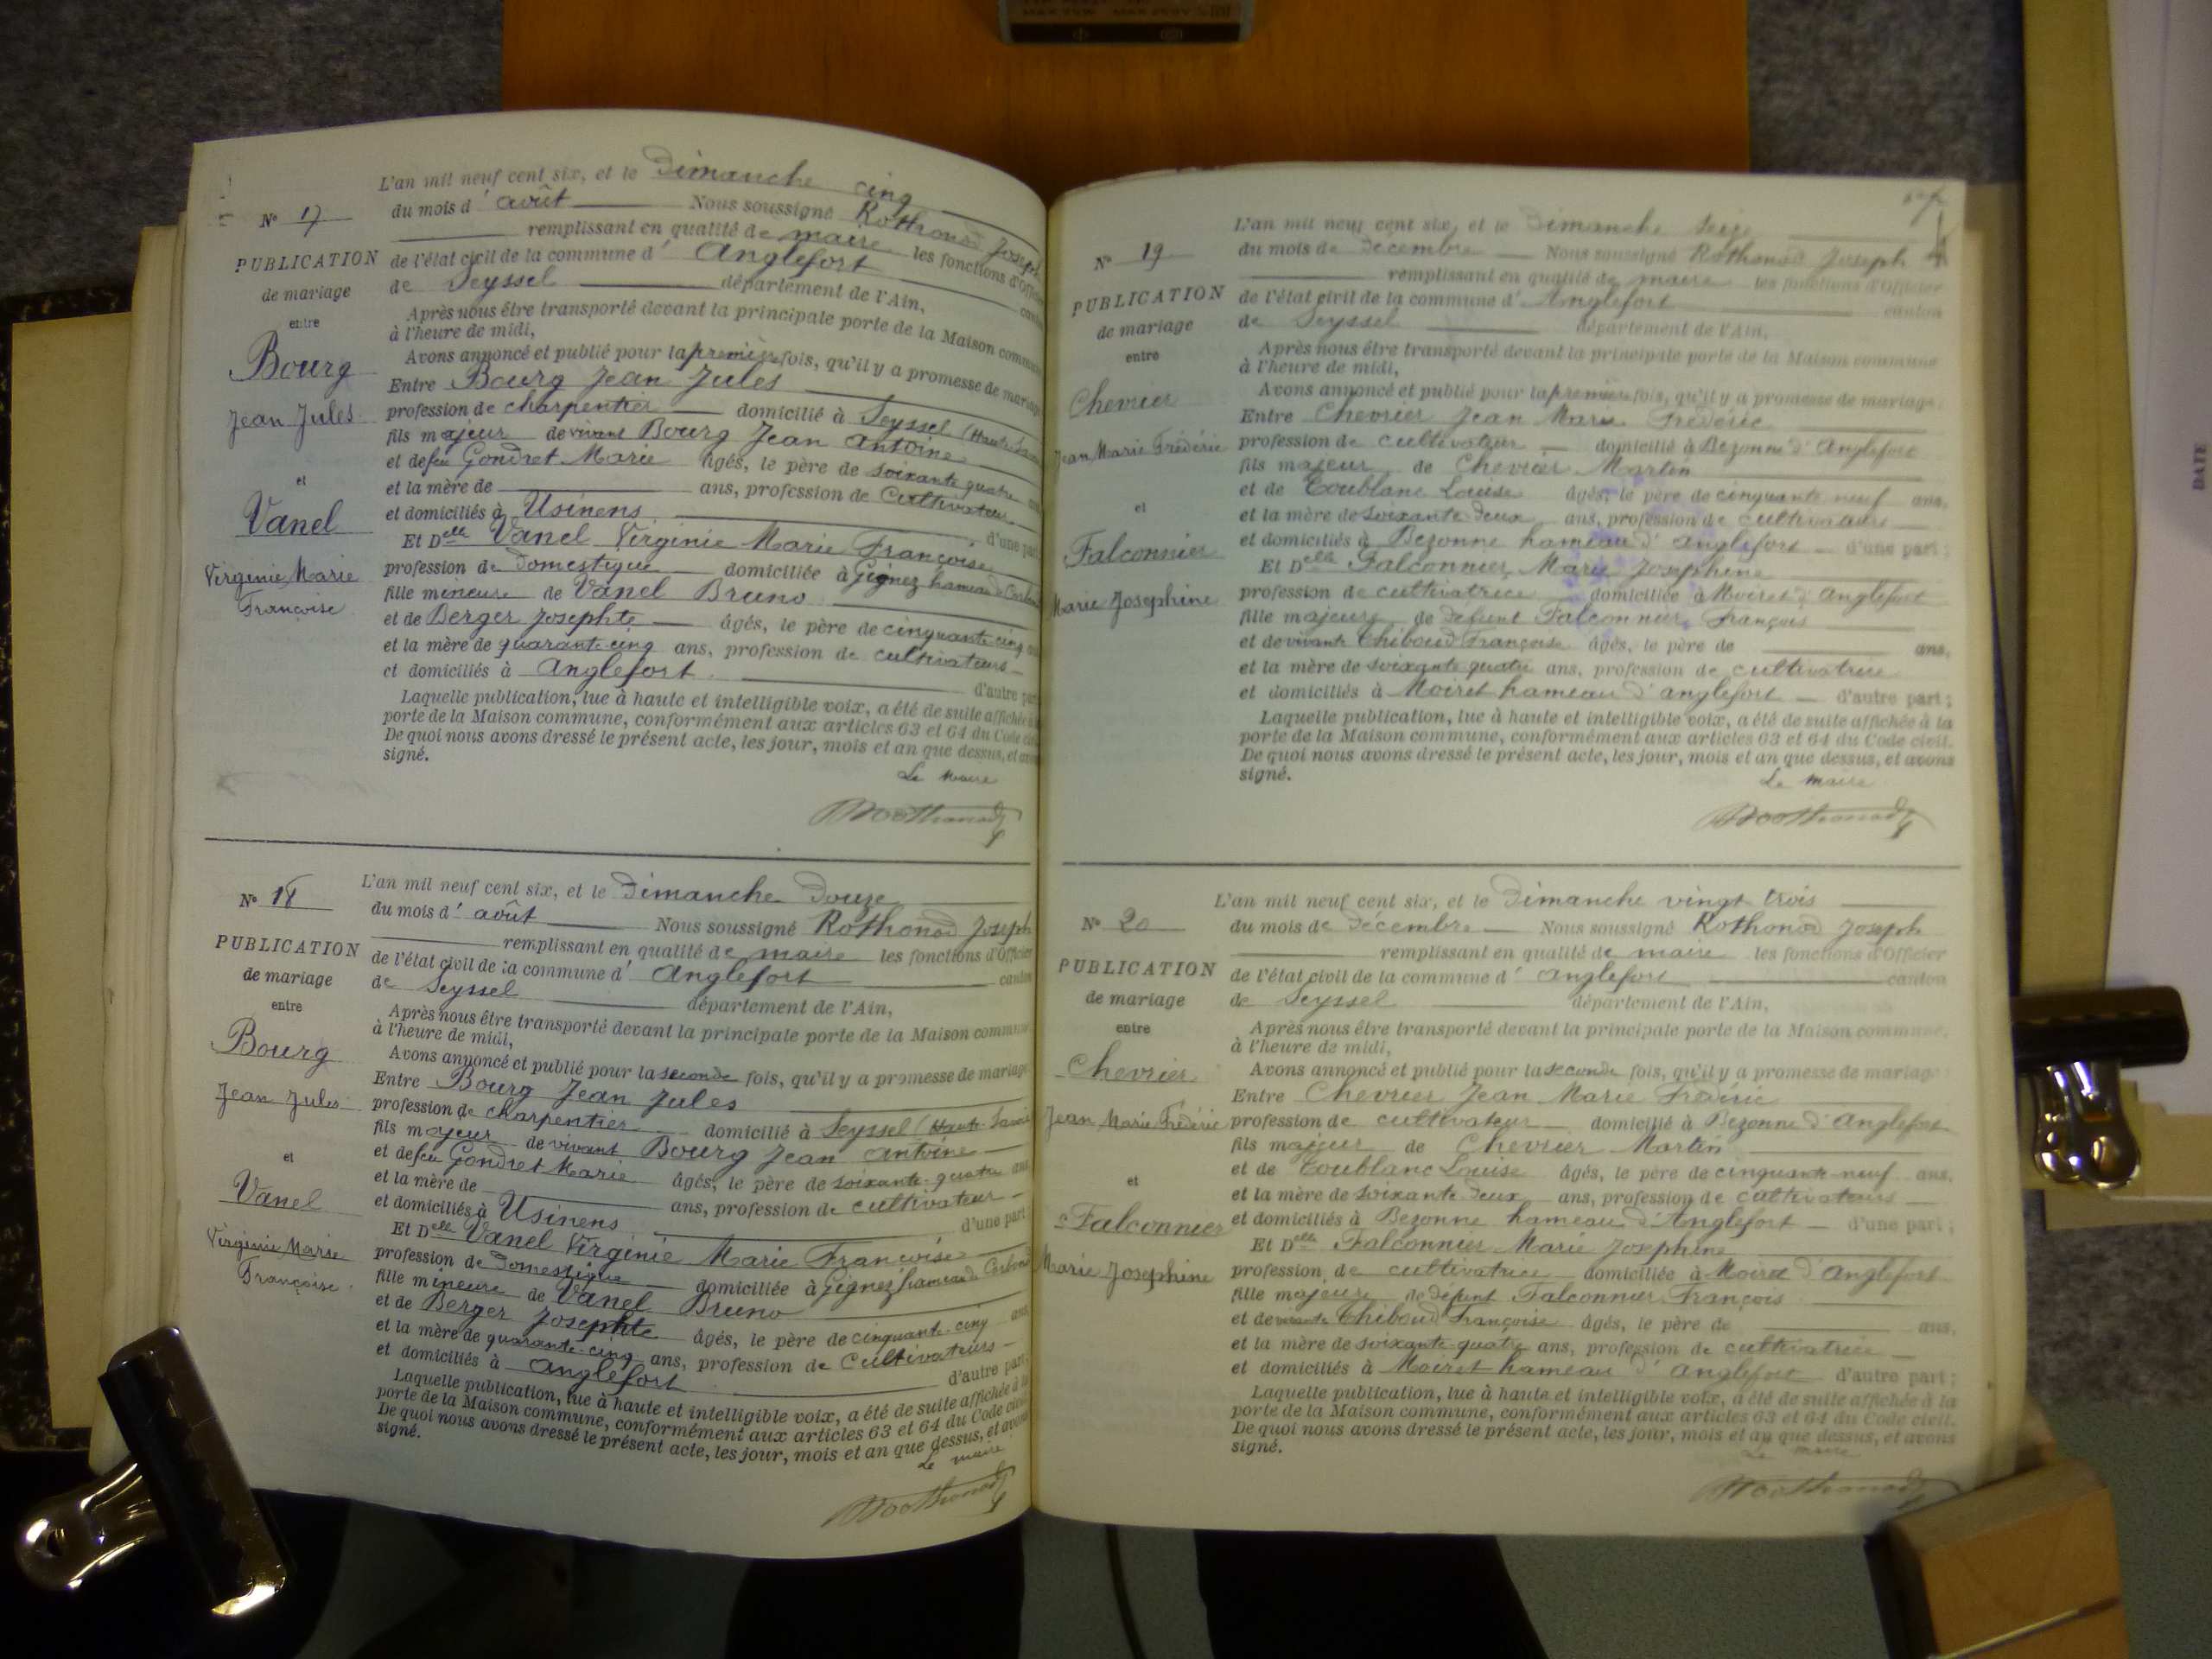 L'an mil neuf cent six, et le Dimanche cinq
N° 17 du mois d'août Nous soussigné Rothonod Joseph
remplissant en qualité de maire les fonctions d'Officier
PUBLICATION de l'état civil de la commune d' Anglefort canton
de mariage de Seyssel département de l'Ain,
entre Après nous être transporté devant la principale porte de la Maison commune
à l'heure de midi,
Bourg Avons annoncé et publié pour la première fois, qu'il y a promesse de mariage
Entre Bourg Jean Jules
Jean Jules profession de charpentier domicilié à Seyssel (Haute-Savoie
fils majeur de vivant Bourg Jean Antoine
et de feu Gondret Marie âgés, le père de soixante quatre ans
et et la mère de ans, profession de cultivateur
Vanel et domiciliés à Usinens d'une part
Et Delle Vanel Virginie Marie Françoise
Virginie Marie profession de Domestique domiciliée à Gignez hameau de
Françoise fille mineure de Vanel Bruno
et de Berger Josephte âgés, le père de cinquante cinq
et la mère de quarante-cinq ans, profession de cultivateurs
et domiciliés à Anglefort d'autre part
Laquelle publication, lue à haute et intelligible voix, a été de suite affichée à
porte de la Maison commune, conformément aux articles 63 et 64 du Code civil
De quoi nous avons dressé le présent acte, les jour, mois et an que dessus, et avons
signé.
Le Maire
Rothonod
L'an mil neuf cent six, et le Dimanche Douze
N° 18 du mois d'août Nous soussigné Rothonod Joseph
remplissant en qualité de maire les fonctions d'Officier
PUBLICATION de l'état civil de la commune d' Anglefort canton
de mariage de Seyssel département de l'Ain,
entre Après nous être transporté devant la principale porte de la Maison commune
à l'heure de midi,
Bourg Avons annoncé et publié pour la seconde fois, qu'il y a promesse de mariage
Entre Bourg Jean Jules
Jean Jules profession de charpentier domicilié à Seyssel (Haute-Savoie
fils majeur de vivant Bourg Jean Antoine
et et de feu Gondret Marie âgés, le père de soixante-quatre ans
et la mère de ans, profession de cultivateur
Vanel et domiciliés à Usinens d'une part;
Et Delle Vanel Virginie Marie Françoise
Virginie Marie profession de Domestique domiciliée à Gignez hameau de
Françoise fille mineure de Vanel Bruno
et de Berger Josephte âgés, le père de cinquante-cinq ans
et la mère de quarante-cinq ans, profession de cultivateurs
et domiciliés à Anglefort d'autre part;
Laquelle publication, lue à haute et intelligible voix, a été de suite affichée à la
porte de la Maison commune, conformément aux articles 63 et 64 du Code civil
De quoi nous avons dressé le présent acte, les jour, mois et an que dessus, et avons
signé.
Le maire
Rothonod
L'an mil neuf cent six, et le Dimanche Seize
N° 19 du mois de Décembre Nous soussigné Rothonod Joseph
remplissant en qualité de maire les fonctions d'Officier
PUBLICATION de l'état civil de la commune d' Anglefort canton
de mariage de Seyssel département de l'Ain,
entre Après nous être transporté devant la principale porte de la Maison commune
à l'heure de midi,
Chevrier Avons annoncé et publié pour la première fois, qu'il y a promesse de mariage.
Entre Chevrier Jean Marie Frédéric
Jean Marie Frédéric profession de cultivateur domicilié à Bezonne d'Anglefort
fils majeur de Chevrier Martin
et de Toublanc Louise âgés, le père de cinquante neuf ans,
et et la mère de soixante-deux ans, profession de cultivateurs
Falconnier et domiciliés à Bezonne hameau d'Anglefort d'une part;
Et Delle Falconnier Marie Josephine
Marie Josephine profession de cultivatrice domiciliée à Moiret d'Anglefort
fille majeure de Défunt Falconnier François
et de vivante Thiboud Françoise âgés, le père de ans,
et la mère de soixante quatre ans, profession de cultivatrice
et domiciliés à Moiret hameau d'Anglefort d'autre part;
Laquelle publication, lue à haute et intelligible voix, a été de suite affichée à la
porte de la Maison commune, conformément aux articles 63 et 64 du Code civil.
De quoi nous avons dressé le présent acte, les jour, mois et an que dessus, et avons
signé.
Le maire
Rothonod
L'an mil neuf cent six, et le Dimanche vingt trois
N° 20 du mois de Décembre Nous soussigné Rothonod Joseph
remplissant en qualité de maire les fonctions d'Officier
PUBLICATION de l'état civil de la commune d' Anglefort canton
de mariage de Seyssel département de l'Ain,
entre Après nous être transporté devant la principale porte de la Maison commune,
à l'heure de midi,
Chevrier Avons annoncé et publié pour la seconde fois, qu'il y a promesse de mariage
Entre Chevrier Jean Marie Frédéric
Jean Marie Frédéric profession de cultivateur domicilié à Bezonne d'Anglefort
fils majeur de Chevrier Martin
et de Toublanc Louise âgés, le père de cinquante-neuf ans,
et et la mère de soixante-deux ans, profession de cultivateurs
Falconnier et domiciliés à Bezonne hameau d'Anglefort d'une part;
Et Delle Falconnier Marie Josephine
Marie Josephine profession de cultivatrice domiciliée à Moiret d'Anglefort
fille majeure de défunt Falconnier François
et de vivante Thiboud Françoise âgés, le père de ans,
et la mère de soixante-quatre ans, profession de cultivatrice
et domiciliés à Moiret hameau d'Anglefort d'autre part;
Laquelle publication, lue à haute et intelligible voix, a été de suite affichée à la
porte de la Maison commune, conformément aux articles 63 et 64 du Code civil.
De quoi nous avons dressé le présent acte, les jour, mois et an que dessus, et avons
signé.
Le maire
Rothonod
DATE